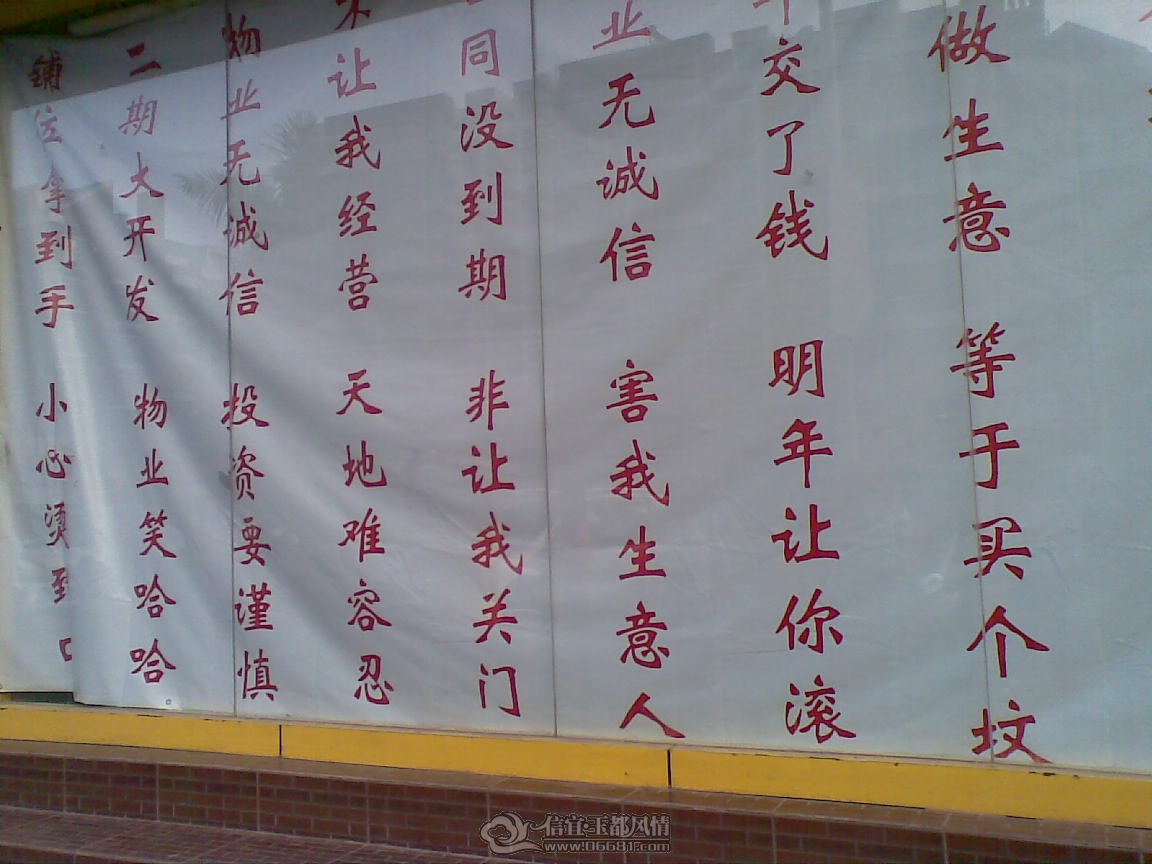 做生意 等于买个坟
年交了钱 明年让你滚
业无诚信 害我生意人
同没到期 非让我关门
让我经营 天地难容忍
物业无诚信 投资要谨慎
二期大开发 物业笑哈哈
铺位拿到手 小心烫到
信宜·玉都风情
www.06681.com